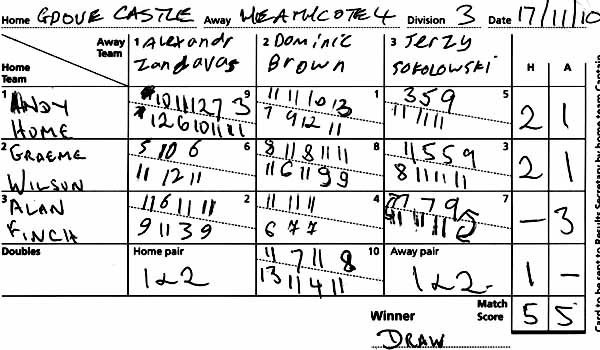 Home GROVE CASTLE Away HEATHCOTE 4 Division 3 Date 17/11/10
Away Team
Home Team
1 Alexandr Zandavas
2 Dominic Brown
3 Jerzy SOKOLOWSKI
H A
1 ANDY HOME
9
10 11 12 7 3
12 6 10 11 11
1
11 11 10 13
7 9 12 11
5
3 5 9
11 11 11
2 1
2 GRAEME WILSON
6
5 10 6
11 12 11
8
8 11 8 11 11
11 6 11 9 9
3
11 5 5 9
8 11 11 11
2 1
3 ALAN FINCH
2
11 6 11 11
9 11 3 9
4
11 11 11
6 7 7
7
7 7 9
11 11 11
- 3
Doubles
Home pair
1&2
10
11 7 11 8
13 11 4 11
Away pair
1&2
1 -
Winner
DRAW
Match Score
5 5
Card to be sent to Results Secretary by home team Captain